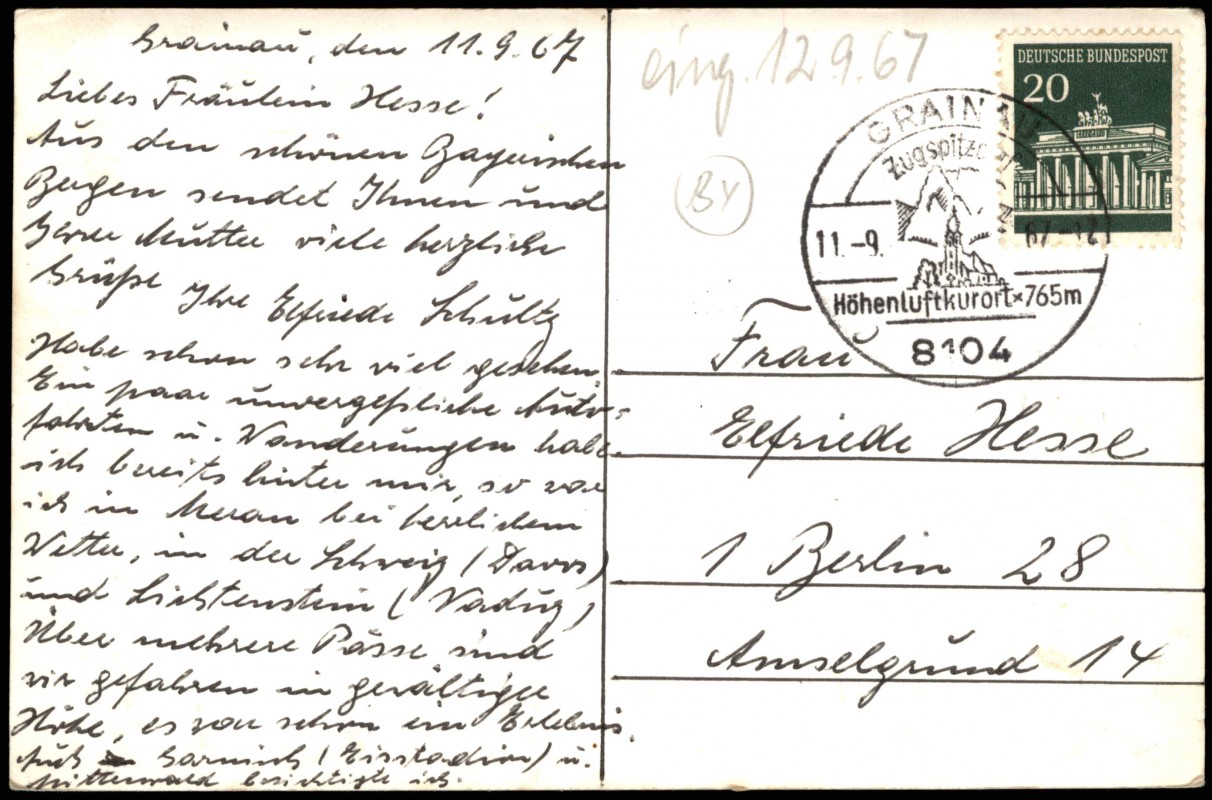 Grainau, den 11.9.67
Liebes Fräulein Hesse!
Aus den schönen Bayerischen
Bergen sendet Ihnen und
Ihrer Mutter viele herzliche
Grüße
Ihre Elfriede Schultz
Habe schon sehr viel gesehen.
Ein paar unvergeßliche Auto-
fahrten u. Wanderungen habe
ich bereits hinter mir, so war
ich in Meran bei herrlichem
Wetter, in der Schweiz (Davos)
und Lichtenstein (Vaduz)
Über mehrere Pässe sind
wir gefahren in gewaltiger
Höhe, es war schon ein Erlebnis.
Auch Garmisch (Eisstadion) u.
Mittenwald besichtigte ich.
eing. 12.9.67
BY
DEUTSCHE BUNDESPOST
20
GRAINAU
Zugspitzdorf
11.-9. 67-12
Höhenluftkurort×765m
8104
Frau
Elfriede Hesse
1 Berlin 28
Amselgrund 14